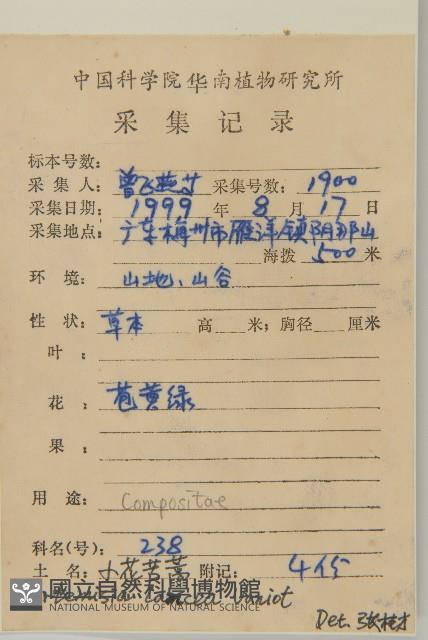 中国科学院华南植物研究所
采集记录
标本号数:
采集人: 曾飞燕 采集号数: 1900
采集日期: 1999 年 8 月 17 日
采集地点: 广东梅州市雁洋镇阴那山
海拨 500 米
环境: 山地、山谷
性状: 草本 高 米; 胸径 厘米
叶:
花: 苞黄绿
果:
用途: Compositae
科名(号): 238
土名: 小花 附记: 4份
國立自然科學博物館
NATIONAL MUSEUM OF NATURAL SCIENCE
Det. 张桂才